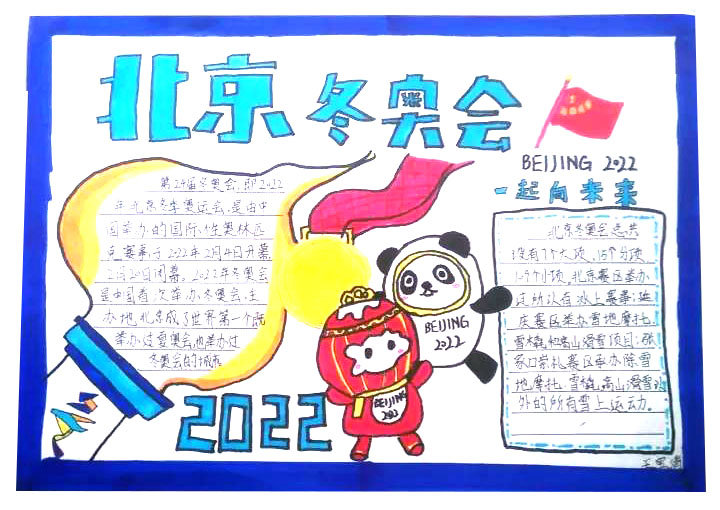 北京冬奥会
BEIJING 2022
一起向未来
第24届冬奥会,即2022
年北京冬季奥运会,是由中
国举办的国际性奥林匹
克赛事,于2022年2月4日开幕,
2月20日闭幕。2022年冬奥会
是中国首次举办冬奥会,主
办地北京成了世界第一个既
举办过夏奥会也举办过
冬奥会的城市
北京冬奥会总共
设有7个大项,15个分项,
109个小项。北京赛区举办
这所以有冰上赛事;延
庆赛区举办雪地摩托、
雪车橇和高山滑雪项目;张
家口崇礼赛区承办除雪
地摩托、雪橇、高山滑雪以
外的所有雪上运动。
BEIJING
2022
BEIJING
202
2022